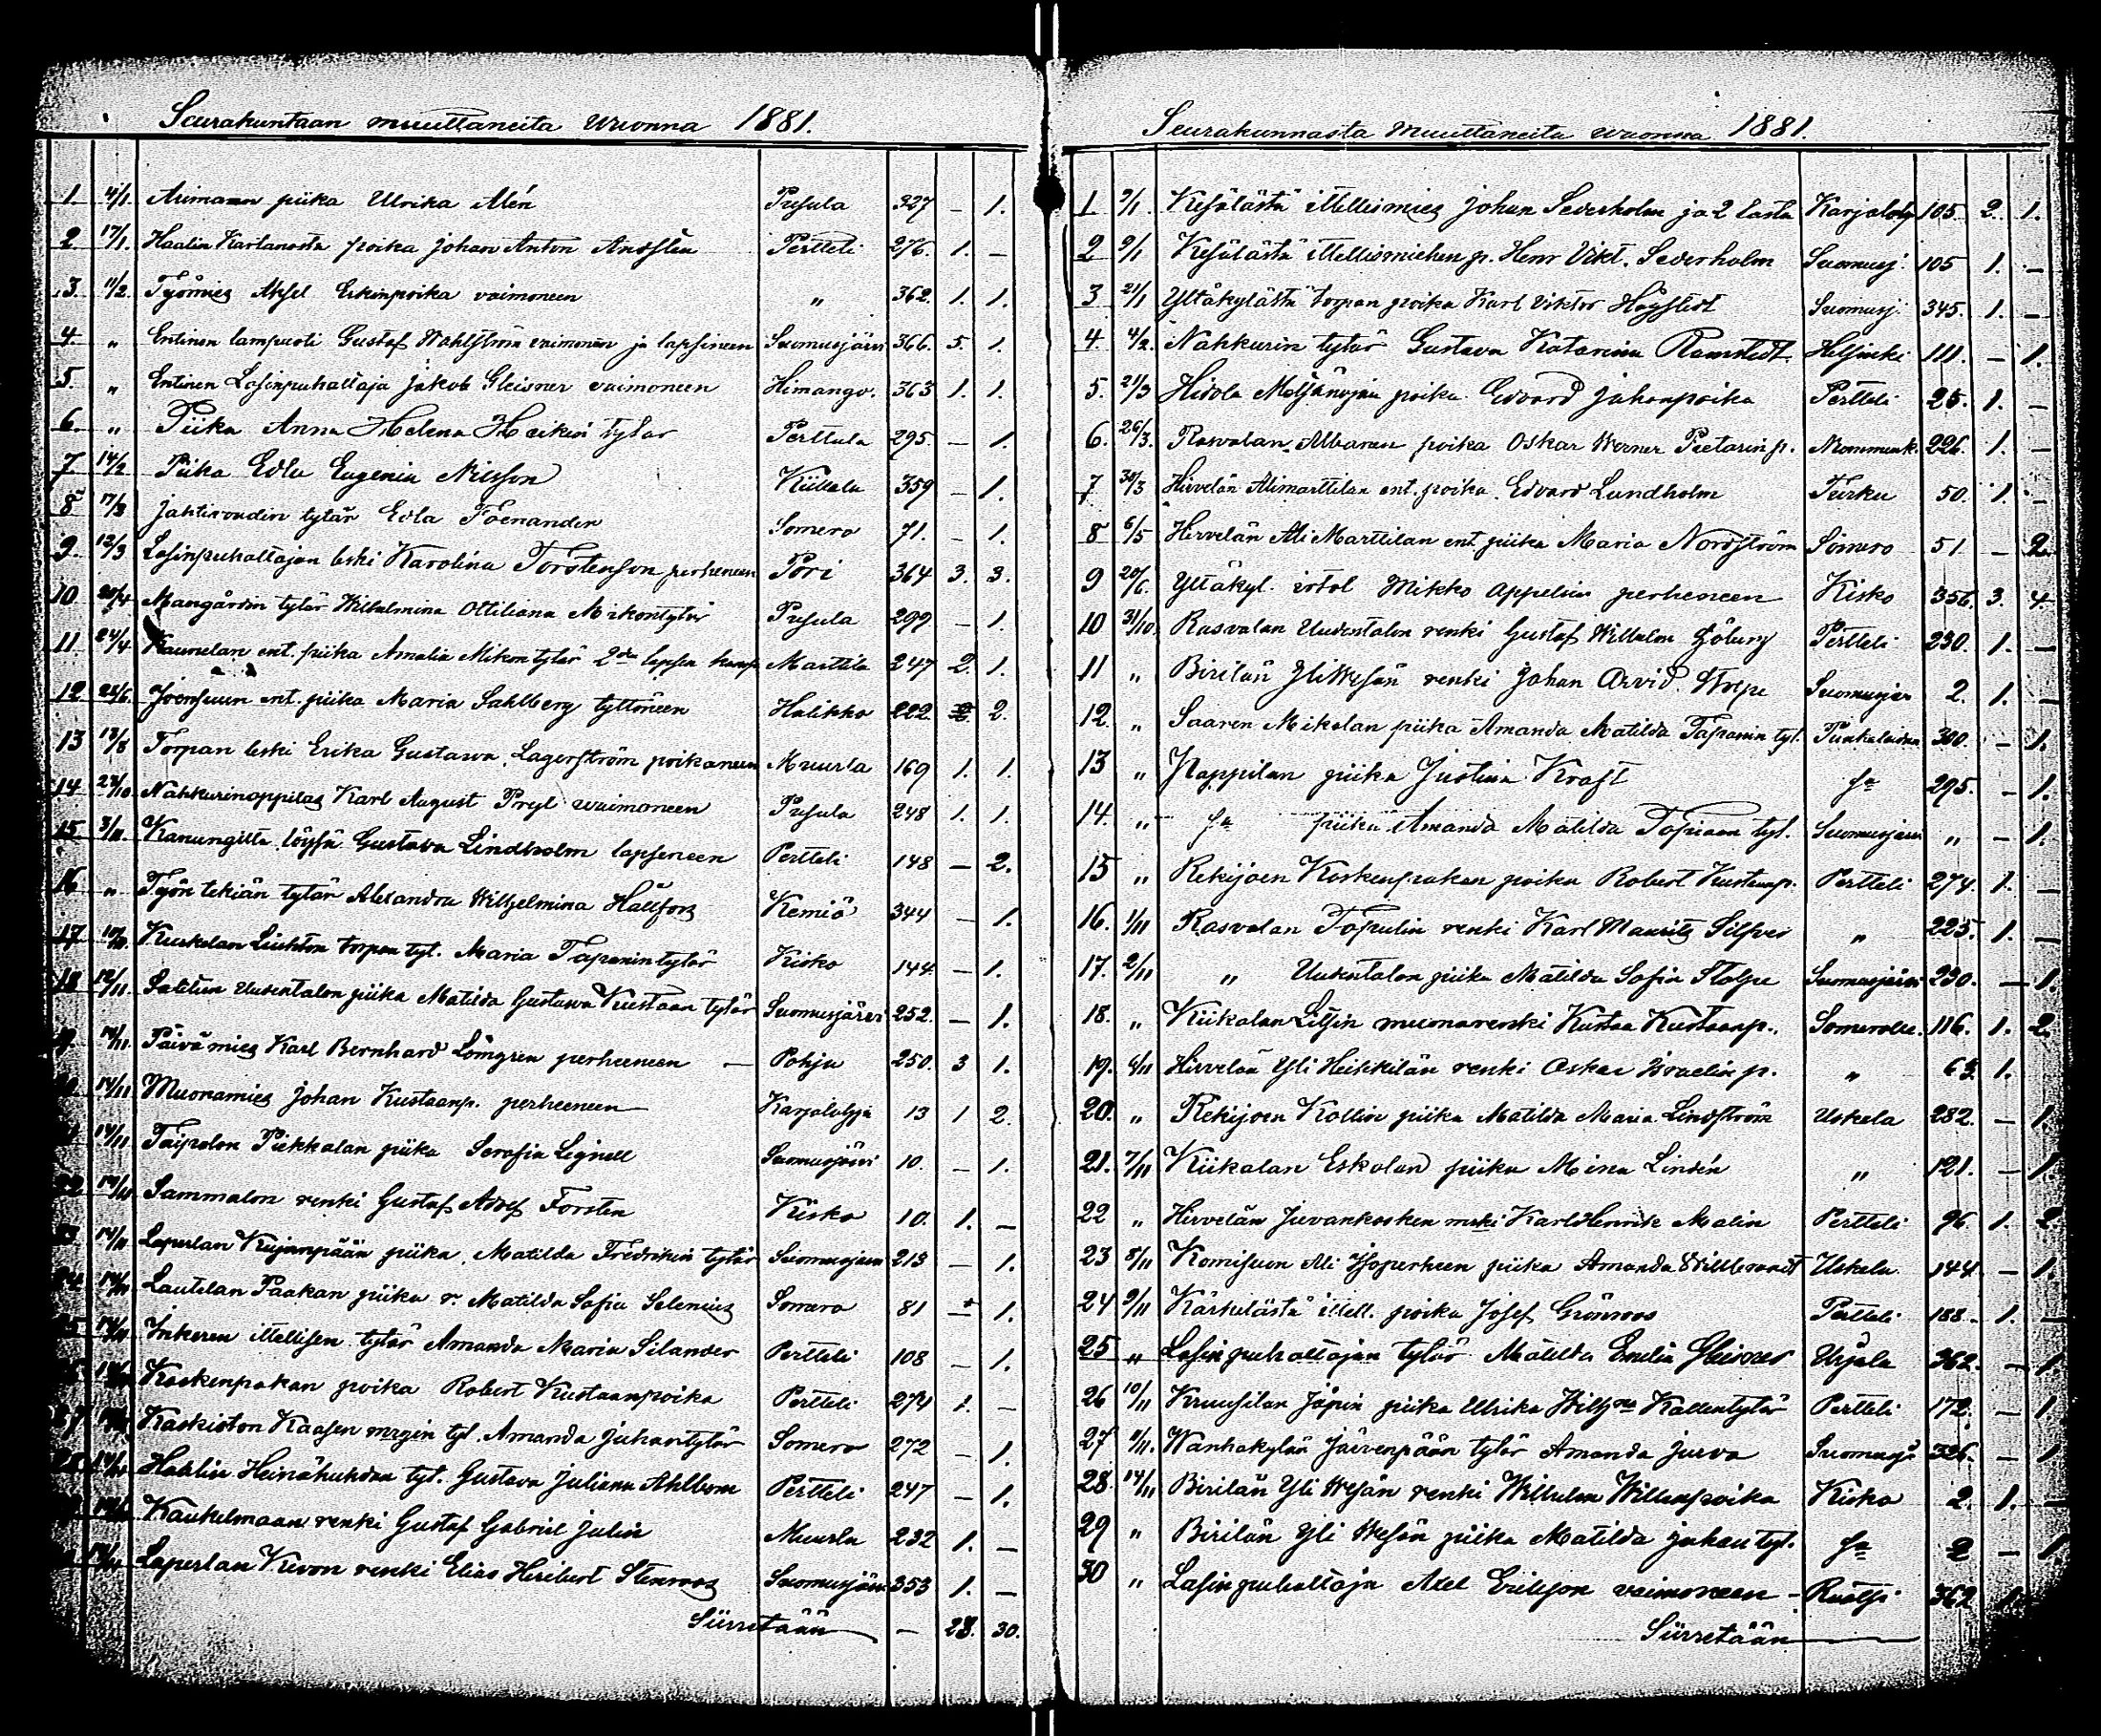 Seurakuntaan muuttaneita vuonna 1881.
1 4/1. piika Ulrika Alén Pusula 327 – 1.
2 17/1. Haalin Kartanosta poika Johan Anton Pertteli 276. 1. –
3. 11/2. Työmies Aksel Erkinpoika vaimoneen „ 362. 1. 1.
4. „ Entinen lampuoti Gustaf Wahlström vaimoneen ja lapsineen Suomusjärvi 366. 5. 1.
5. „ Entinen Lasinpuhaltaja Jakob Gleisner vaimoneen Himango. 363 1. 1.
6. „ Piika Anna Helena Heikin tytär Perttula 295. – 1.
7 14/2 Piika Edla Eugenia Nilsson Kiikala 359 – 1.
8 17/3 Jahtivoudin tytär Edla Foenander Somero 71. – 1.
9. 12/3 Lasinpuhaltajan leski Karolina Torstenson perheneen Pori 364 3. 3.
10 20/4 Mangårdin tytär Wilhelmina Ottiliana Mikontytär Pusula 299 – 1.
11. 24/4 ent. piika Amalia Mikontytär 2den lapsen kanssa Marttila 247 2. 1.
12 25/6. Joensuun ent. piika Maria Sahlberg tyttöneen Halikko 222 2. 2.
13 13/8 Torpan leski Erika Gustava Lagerström poikaneen Muurla 169 1. 1.
14 23/10 Nahkurinoppilas Karl August Pryl vaimoneen Pusula 248 1. 1.
15 3/11. Kanungilta löysä Gustava Lindholm lapseneen Pertteli 148 – 2.
16 „ Työn tekiän tytär Alexandra Wilhelmina Hällfors Kemiö 344 – 1.
17 Kuskelan torpan tyt. Maria Tapanintytär Kisko 144 – 1.
18 12/11. Uudentalon piika Matilda Gustava Kustaan tytär Suomusjärvi 252. – 1.
14/11. Päivämies Karl Bernhard Lömgren perheeneen — Pohja 250. 3 1.
14/11 Muonamies Johan Kustaanp. perheeneen Karjalohja 13 1 2.
14/11 Taipalon Piekkalan piika Serafia Lignell Suomusjärvi 10. – 1.
22 14/11 Sammalon renki Gustaf Adolf Forsten Kisko 10. 1. –
14/11 Laperlan Kujanpään piika Matilda Fredrikin tytär Suomusjärvi 213 – 1.
24 Lautelan Paakan piika r. Matilda Sofia Selenius Somero 81 – 1.
Inkeren itellisen tytär Amanda Maria Silander Pertteli 108 – 1.
Koskenpakan poika Robert Kustaanpoika Pertteli 274 1. –
27 Kaskiston tyt. Amanda Juhantytär Somero 272 – 1.
Hahlin Heinähuhdan tyt. Gustava Juliana Ahlbom Pertteli 247 – 1.
Kaukelmaan renki Gustaf Gabriel Julin Muurla 232 1. –
Laperlan renki Elias Heribert Stenroos Suomusjärvi 353 1. –
Siirretään — 28. 30.
Seurakunnasta muuttaneita vuonna 1881.
1 9/1. Kesälästä itellismies Johan Sederholm ja 2 lasta Karjalohja 105. 2. 1.
2 9/1 Kesälästä itellismiehen p. Henr Vikt. Sederholm Suomusj. 105 1. –
3 21/1 Yltäkylästä torpan poika Karl Viktor Suomusj. 345. 1. –
4. 4/2. Nahkurin tytär Gustava Katarina Ramstedt Helsinki 111. – 1.
5. 21/3 Hidola poika Edvard Juhanpoika Pertteli 25. 1. –
6. 26/3. Rasvalan poika Oskar Werner Pietarinp. Nummenk. 226. 1. –
7 30/3 Hirvelän Alimarttilan ent. poika Edvard Lundholm Turku 50. 1. –
8 6/5 Hirvelän Ali Marttilan ent piika Maria Nordström Somero 51. – 2
9 20/6. Yltäkyl. irtol Mikko Appelin perheneen Kisko 356. 3. 4.
10 31/10 Rasvalan Uudentalon renki Gustaf Wilhelm Sjöberg Pertteli 230. 1. –
11 „ Birilän Yliwesän renki Johan Arvid Stolpe Suomusjär 2. 1. –
12. „ Saaren Mikolan piika Amanda Matilda Tapanin tyt. Punkalaidun 300. – 1.
13 „ Nappilan piika Justina Kraft sa 295. – 1.
14. „ sa piika Amanda Matilda Topiaan tyt. Suomusjärvi „ – 1.
15 „ Rekijoen Koskenpakan poika Robert Kustaanp. Pertteli 274. 1. –
16. 1/11 Rasvalan Topulin renki Karl Maurits Silfver „ 225. 1. –
17. 2/11 „ Uudentalon piika Matilda Sofia Stolpe Suomusjärvi 230. – 1.
18. „ Kiikalan muonarenki Kustaa Kustaanp. 116. 1. 2.
19. 6/11 Hirvelän Yli Heikkilän renki Oskar Israelin p. „ 63. 1.
20. „ Rekijoen Kollin piika Matilda Maria Lindström Uskela 282. – 1.
21. 7/11 Kiikalan Eskolan piika Mina Lindén „ 121. – 1.
22 „ Hirvelän Juvankosken renki Karl Henrik Malin Pertteli 96. 1. 2
23 8/11 Komisuon Ali Isoperheen piika Amanda Willbrandt Uskela 144. – 1.
24 9/11 Kärkelästä itell. poika Josef Grönroos Pertteli 188. 1. –
25 „ Lasinpuhaltajan tytär Matilda Emilia Gleisner Urjala 362. – 1
26 10/11 Kruusilan Jöpin piika Ulrika Wilhna Kallentytär Pertteli 172. – 1
27 11/11. Wanhakylän Järvenpään tytär Amanda Jurva Suomusjä 326. – 1
28. 14/11 Birilän Yli Wesän renki Wilhelm Willenpoika Kisko 2. 1. –
29 „ Birilän Yli Wesän piika Matilda Juhan tyt. sa 2 – 1
30 „ Lasinpuhaltaja Axel Erikson vaimoneen – Ruotsi 362 1
Siirretään —